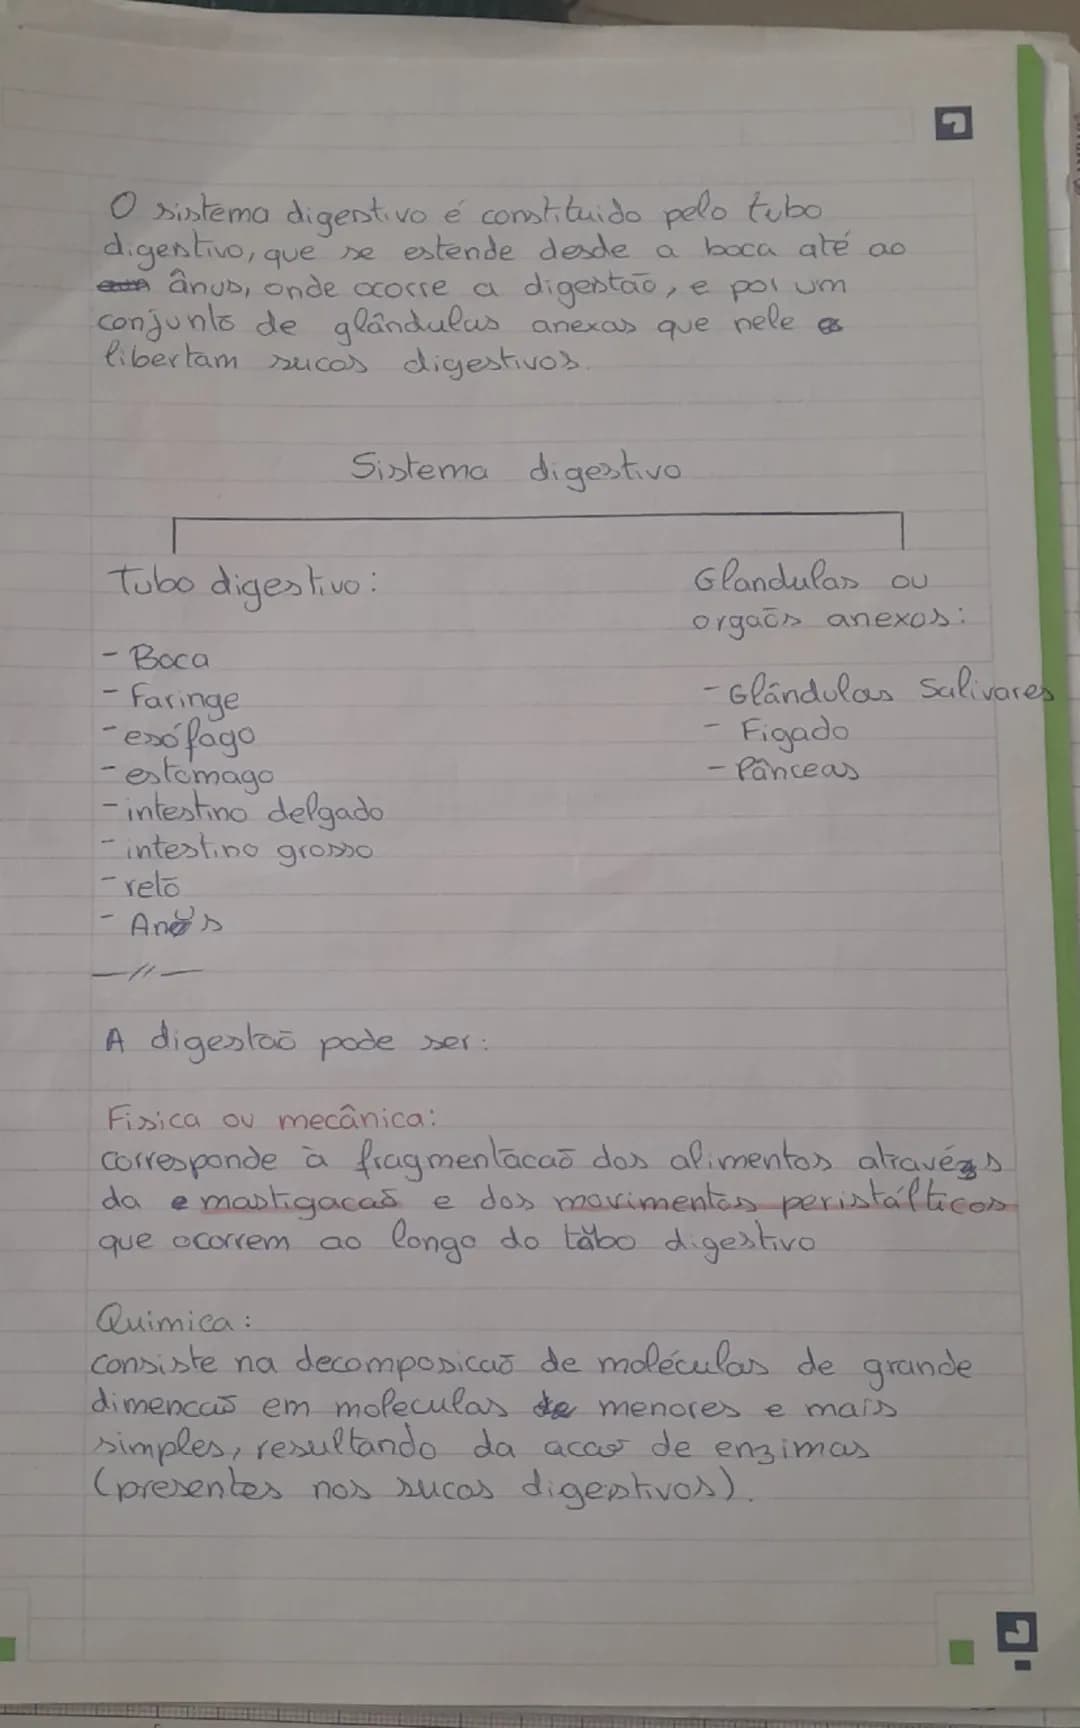 O sistema digestivo é constituido pelo tubo
digestivo, que se estende desde a boca até ao
ânus, onde ocorre a digestão, e por um
conjunto de glândulas anexas que nele
libertam sucos digestivos.
Sistema digestivo
Tubo digestivo:
- Boca
- Faringe
- esófago
- estomago
- intestino delgado
- intestino grosso
- retō
- Anus
Glandulas ou
orgaõs anexos:
- Glândulas Salivares
- Figado
- Pânceas
—//—
A digestaõ pode ser:
Fisica ou mecânica:
corresponde à fragmentacaõ dos alimentos atravéz s
da e mastigacaõ e dos movimentos peristálticos
que ocorrem ao longo do tubo digestivo
Quimica:
consiste na decomposicaõ de moléculas de grande
dimencaõ em moleculas de menores e mais
simples, resultando da acao de enzimas
(presentes nos sucos digestivos).